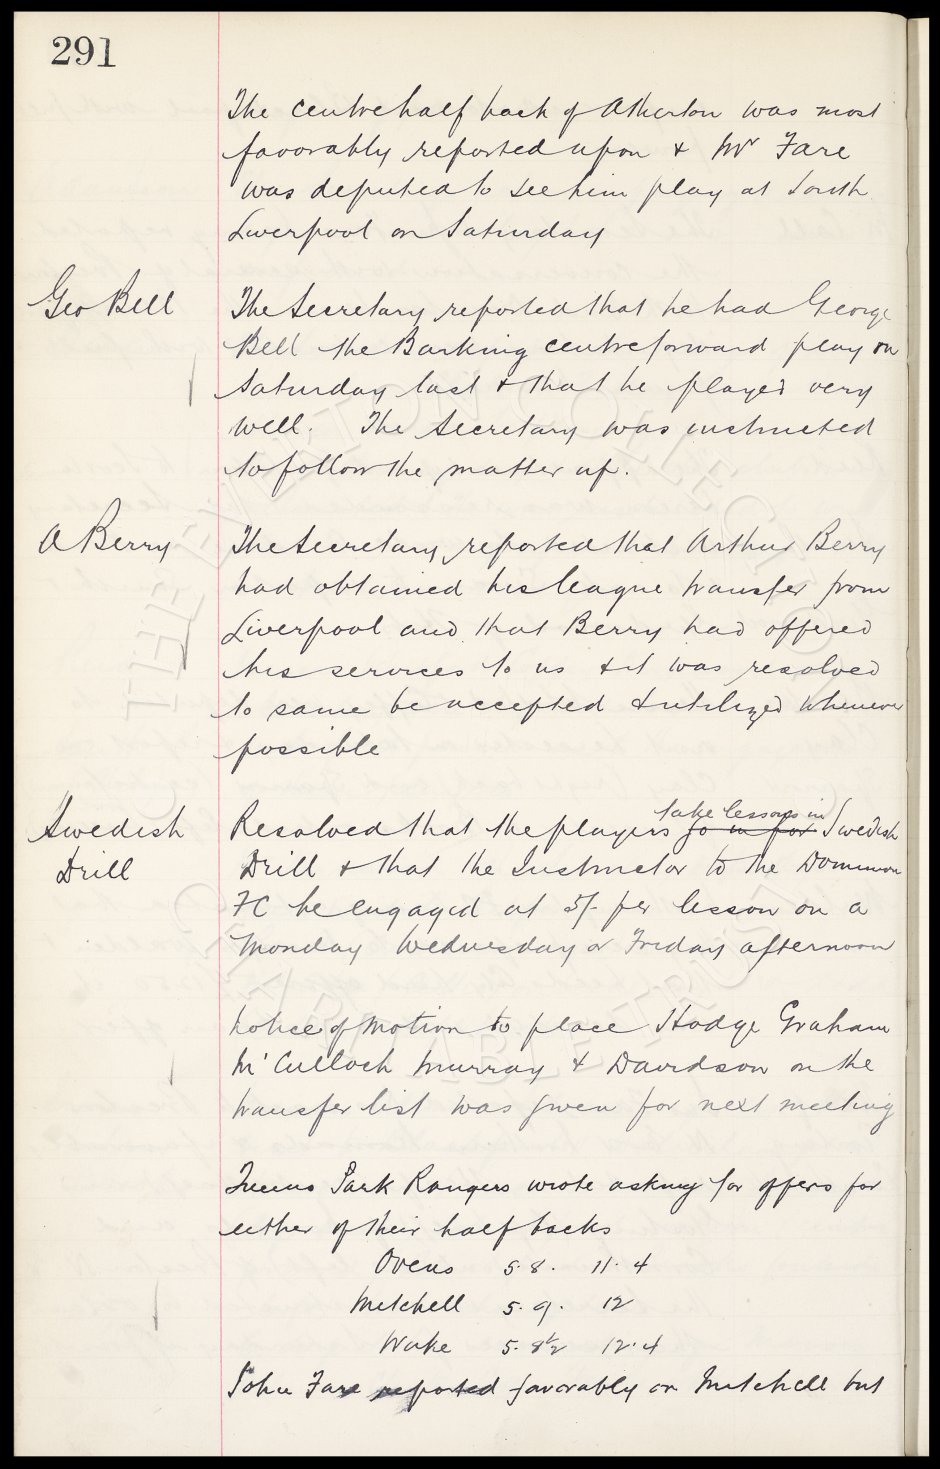 291
The centre half back of Atherton was most
favorably reported upon & Mr Fare
was deputed to see him play at South
Liverpool on Saturday
Geo Bell
The Secretary reported that he had George
Bell the Barking centre forward play on
Saturday last & that he played very
well. The Secretary was instructed
to follow the matter up.
A Berry
The Secretary reported that Arthur Berry
had obtained his league transfer from
Liverpool and that Berry had offered
his services to us & it was resolved
to same be accepted & utilized whenever
possible
Swedish
Drill
take lessons in
Resolved that the players go in for Swedish
Drill & that the Instructor to the Dominion
FC be engaged at 5/- per lesson on a
Monday Wednesday or Friday afternoon
Notice of Motion to place Hodge Graham
McCulloch Murray & Davidson on the
transfer list was given for next meeting
Queens Park Rangers wrote asking for offers for
either of their half backs
Ovens 5.8. 11.4
Mitchell 5.9. 12
Wake 5.8½ 12.4
John Fare reported favorably on Mitchell but